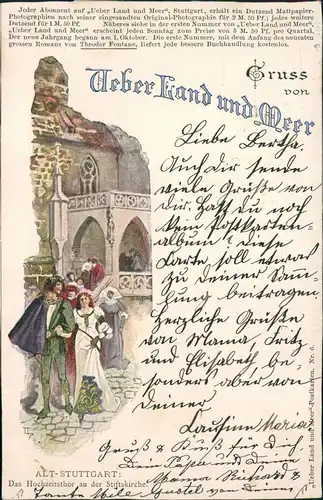 Jeder Abonnent auf „Ueber Land und Meer", Stuttgart, erhält ein Dutzend Mattpapier-
Photographien nach seiner eingesandten Original-Photographie für 2 M. 50 Pf.; jedes weitere
Dutzend für 1 M. 50 Pf. Näheres siehe in der ersten Nummer von „Ueber Land und Meer".
„Ueber Land und Meer" erscheint jeden Sonntag zum Preise von 3 M. 50 Pf. pro Quartal.
Der neue Jahrgang begann am 1. Oktober. Die erste Nummer, mit dem Anfang des neuesten
grossen Romans von Theodor Fontane, liefert jede bessere Buchhandlung kostenlos.
Gruss
von
Ueber Land und Meer
Liebe Bertha.
Auch Dir sende
viele Grüße von
Dir. Hast du noch
kein Postkarten-
album? Diese
Karte soll etwas
zu deiner Samm-
lung beitragen.
Herzliche Grüße
von Mama, Fritz
und Elisabeth be-
sonders aber von
deiner
Cousine Maria
Gruß & Kuß für Dich
Dein Papa und
Mama Richard &
Tante von
ALT-STUTTGART:
Das Hochzeitsthor an der Stiftskirche
„Ueber Land und Meer"-Postkarten. Nr. 6.